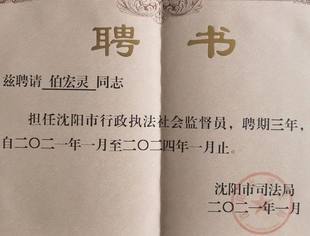 聘书
兹聘请 伯宏灵 同志
担任沈阳市行政执法社会监督员，聘期三年，
自二〇二一年一月至二〇二四年一月止。
沈阳市司法局
二〇二一年一月